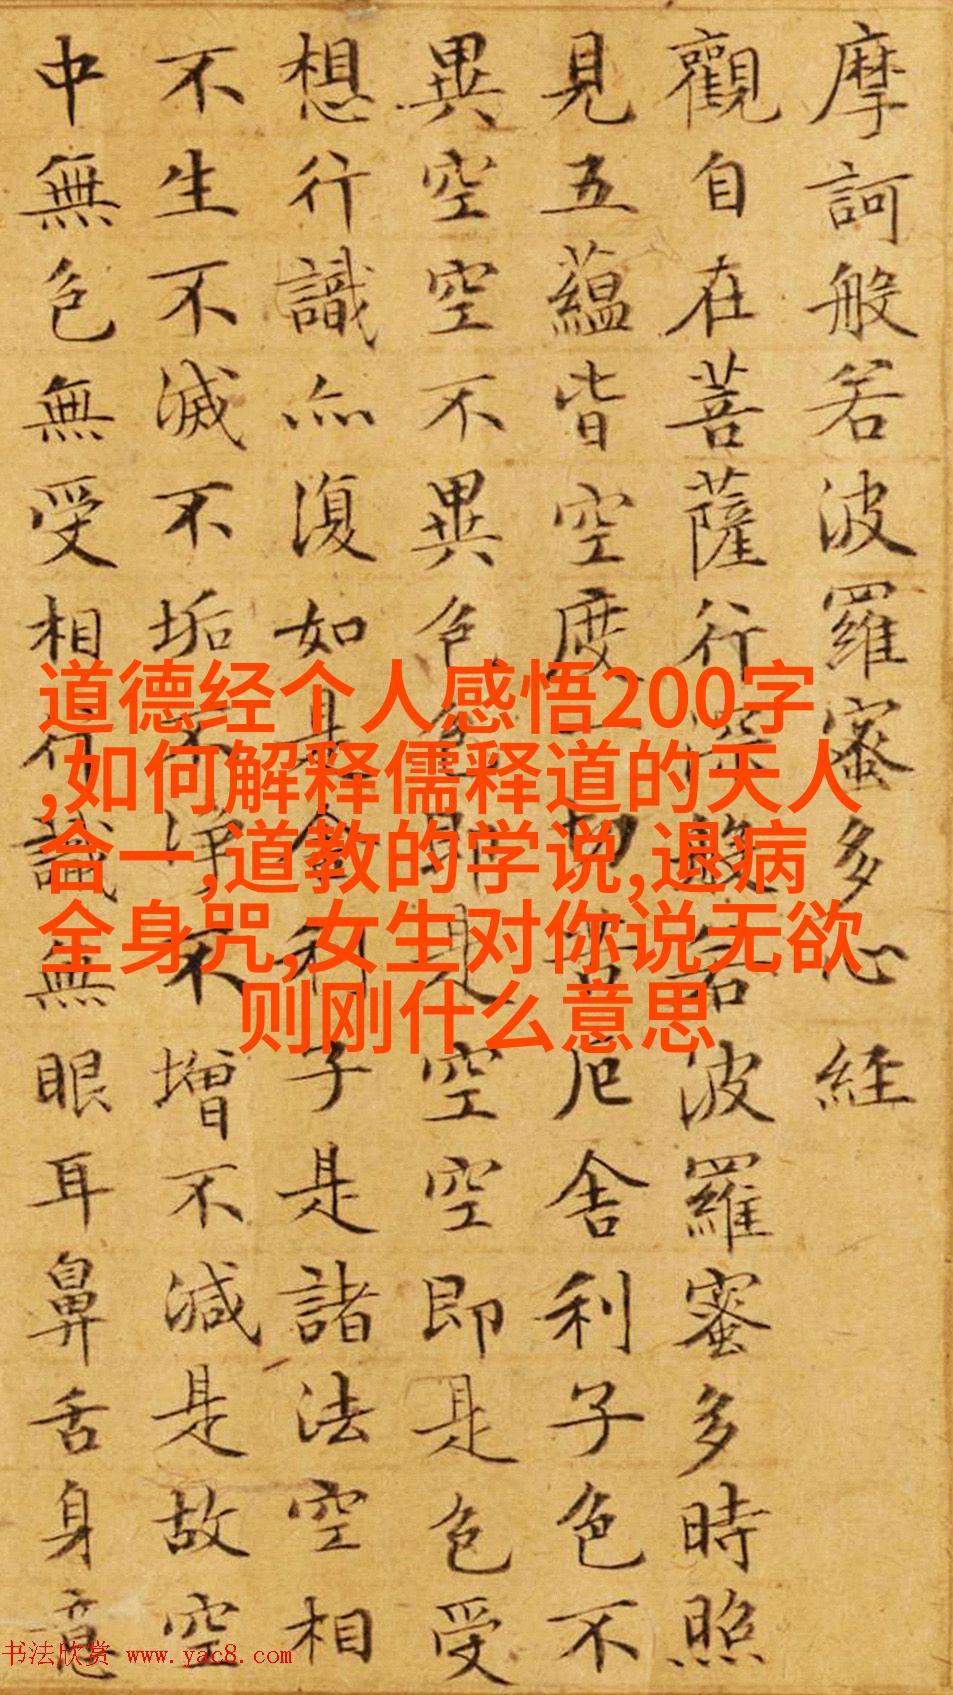 摩訶般若波羅蜜多心経
觀自在菩薩行深般若波羅蜜多時照
見五蘊皆空度一切苦厄舍利子色不
異空空不異色色即是空空即是色受
想行識亦復如是舍利子是諸法空相
不生不滅不垢不淨不增不減是故空
中無色無受想行識無眼耳鼻舌身意
道德经个人感悟200字
,如何解释儒释道的天人
合一,道教的学说,退病
全身咒,女生对你说无欲
则刚什么意思
书法欣赏 www.yac8.com